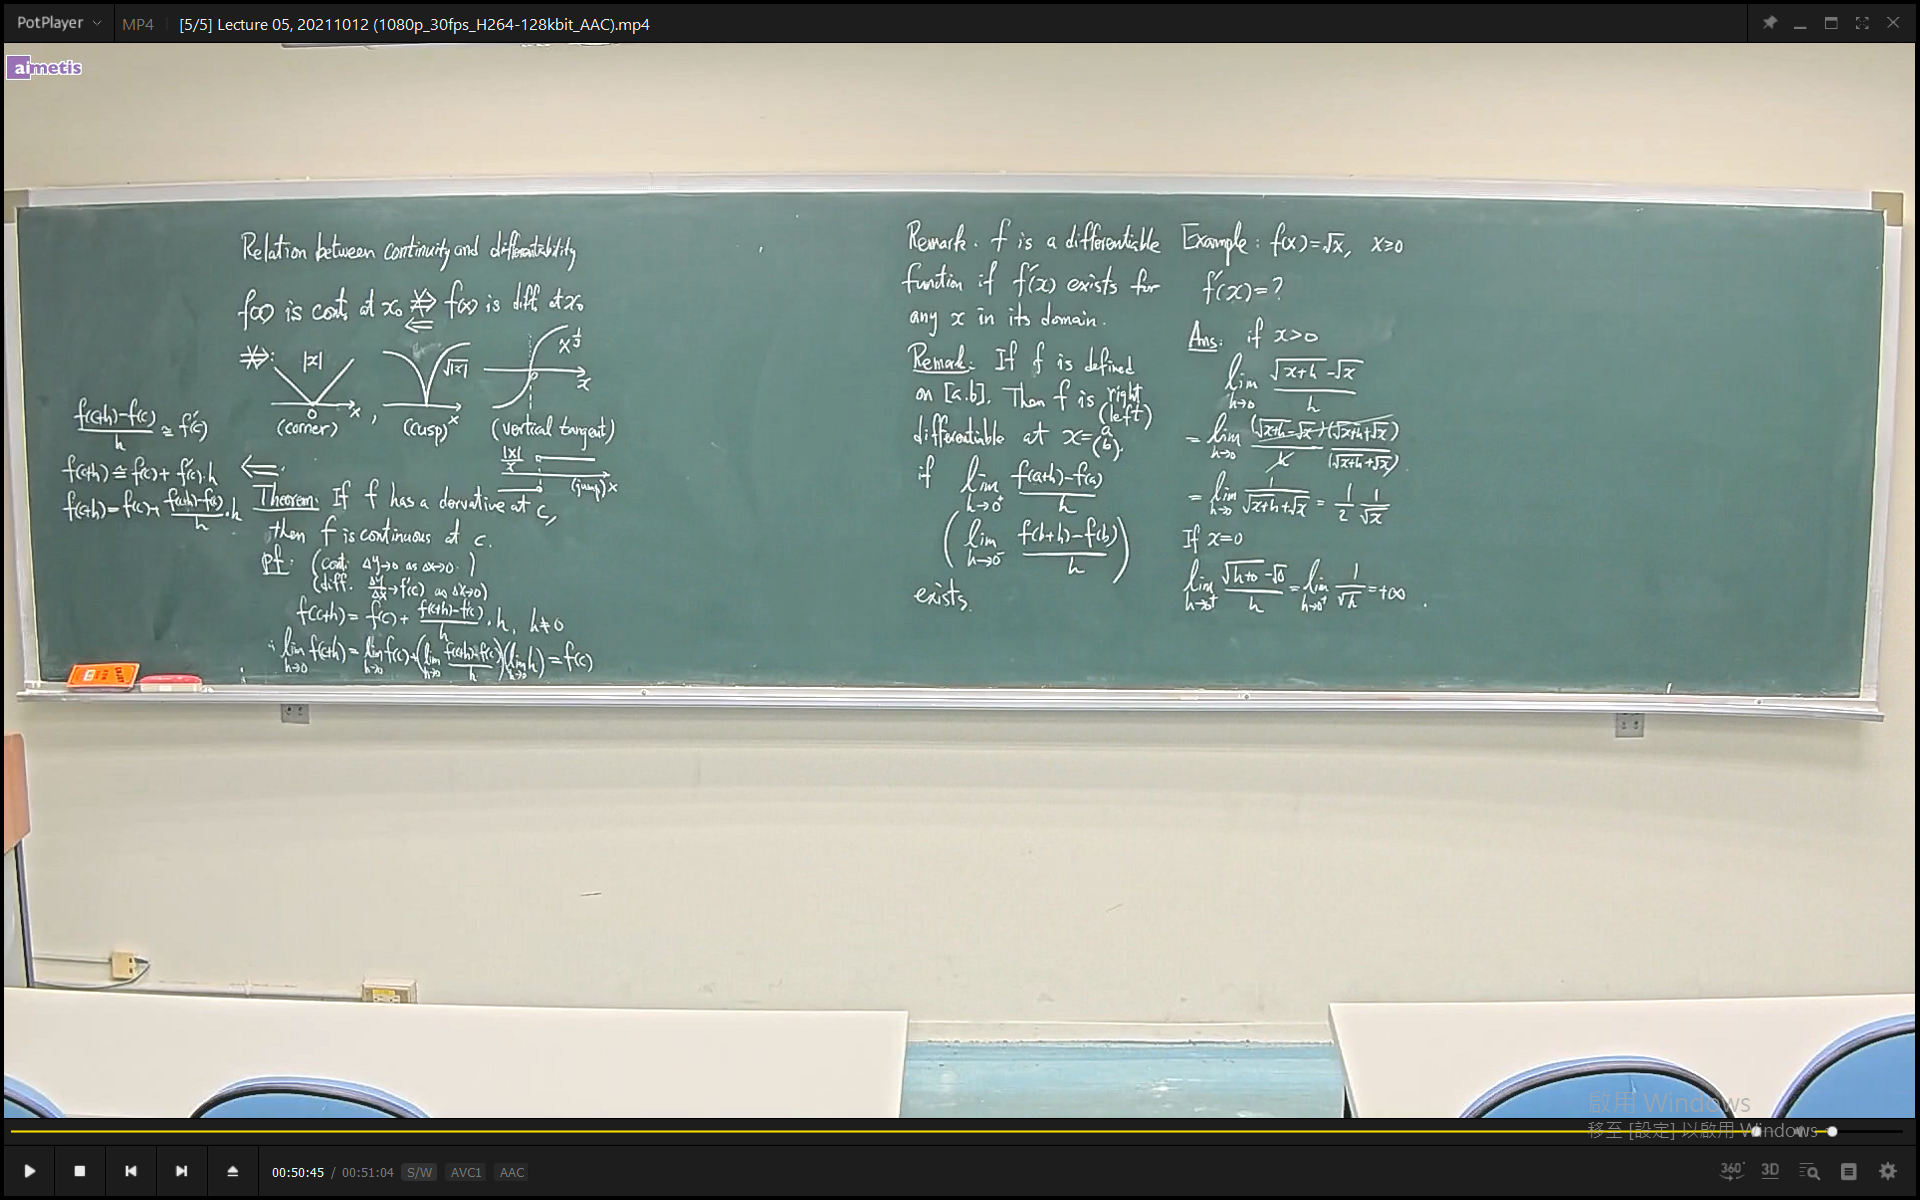 PotPlayer
MP4
[5/5] Lecture 05, 20211012 (1080p_30fps_H264-128kbit_AAC).mp4
aimetis
Relation between continuity and differentiability
f(x) is cont. at x₀ ⇏ f(x) is diff. at x₀
⇐
⇏:
|x|
0
x
(corner)
,
√|x|
x
(cusp)
x^(1/3)
x
(vertical tangent)
|x|/x
(jump) x
(f(c+h)-f(c))/h ≅ f'(c)
f(c+h) ≅ f(c) + f'(c)·h
f(c+h) = f(c) + (f(c+h)-f(c))/h · h
⇐:
Theorem: If f has a derivative at c,
then f is continuous at c.
pf: (cont. Δy→0 as Δx→0.)
(diff. Δy/Δx → f'(c) as Δx→0)
f(c+h) = f(c) + (f(c+h)-f(c))/h · h, h≠0
∴ lim h→0 f(c+h) = lim h→0 f(c) + (lim h→0 (f(c+h)-f(c))/h)(lim h→0 h) = f(c)
Remark. f is a differentiable
function if f'(x) exists for
any x in its domain.
Remark: If f is defined
on [a.b]. Then f is right
(left)
differentiable at x=a
(b).
if lim h→0⁺ (f(a+h)-f(a))/h
(lim h→0⁻ (f(b+h)-f(b))/h)
exists.
Example: f(x)=√x, x≥0
f'(x)=?
Ans: if x>0
lim h→0 (√(x+h) - √x)/h
= lim h→0 (√(x+h) - √x)(√(x+h)+√x) / h (√(x+h)+√x)
= lim h→0 1/(√(x+h)+√x) = 1/2 1/√x
If x=0
lim h→0⁺ (√(h+0) - √0)/h = lim h→0⁺ 1/√h = +∞
啟用 Windows
移至 [設定] 以啟用 Windows
00:50:45 / 00:51:04 S/W AVC1 AAC
360° 3D